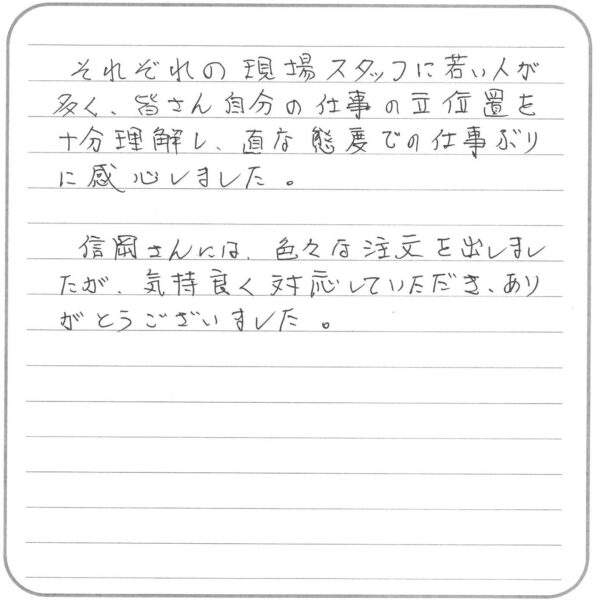 それぞれの現場スタッフに若い人が
多く、皆さん自分の仕事の立位置を
十分理解し、直な態度での仕事ぶり
に感心しました。
信岡さんには、色々な注文を出しまし
たが、気持良く対応していただき、あり
がとうございました。